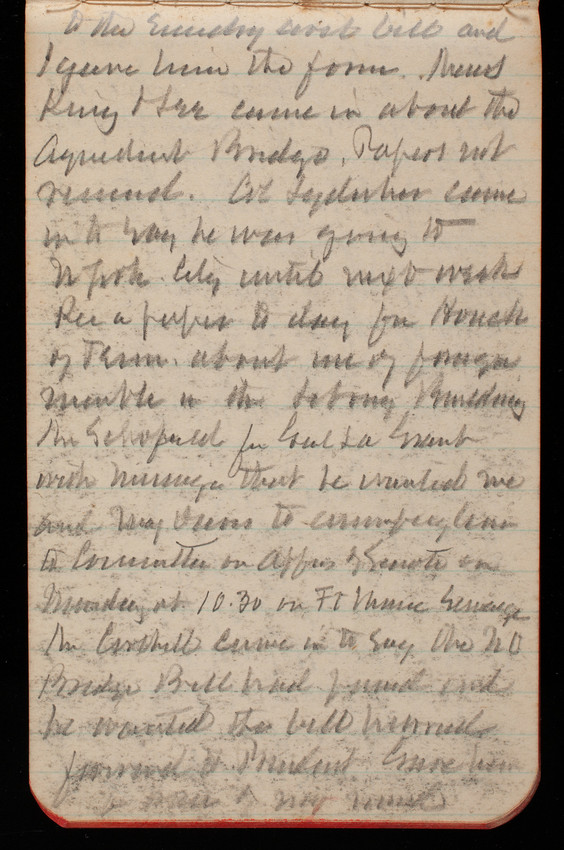 to the Sundry Civil bill and
I gave him the form. Messrs
King & Lee came in about the
Aqueduct Bridge. Papers not
received. Col came
in to say he was going to
N York City until next week
Rec a paper to day for Houck
of Tenn. about use of foreign
marble in the Library Building
Mr Schofield for
with message that he wanted me
and to
to Committee on Appns of Senate on
Monday at 10.30 on Ft Monroe Sewerage
Mr came in to say the N O
Bridge Bill had passed and
he wanted the bill hurried
forward to President Gave him
a note to